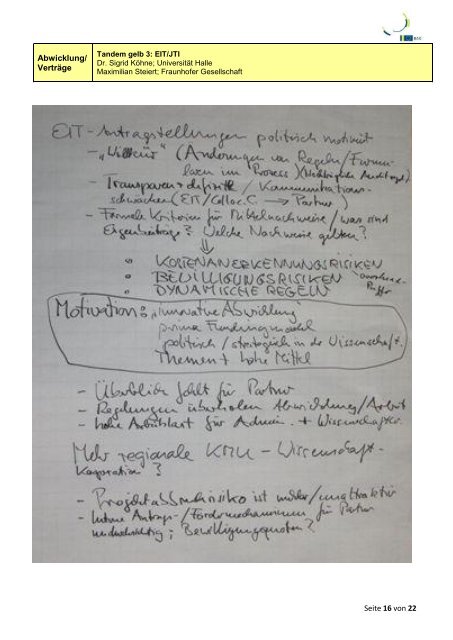 Abwicklung/
Verträge
Tandem gelb 3: EIT/JTI
Dr. Sigrid Köhne; Universität Halle
Maximilian Steiert; Fraunhofer Gesellschaft
EIT-Antragstellungen politisch motiviert
- „Willkür" (Änderungen von Regeln/Formu-
laren im Prozess) (Nachträgliche
- Transparenzdefizite / Kommunikations-
schwächen (EIT/Coloc.C → Partner)
- Formale Kriterien für Mittelnachweise / was sind
Eigenbeiträge? Welche Nachweise gelten?
⇓
• KOSTENANERKENNUNGSRISIKEN
• BEWILLIGUNGSRISIKEN
• DYNAMISCHE REGELN
Motivation: „innovative Abwicklung"
prima Fundingmodel
politisch / strategisch in der Wissenschaft.
Themen + hohe Mittel
- Überblick fehlt für Partner
- Regelungen überholen Abwicklung/Arbeit
- hohe Arbeitslast für Admin. + Wissenschaftler
Mehr regionale KMU - Wissenschaft-
Kooperation?
- Projektabbruchrisiko ist
- Interne Antrags-/Fördermechanismen für Partner
undurchsichtig; Bewilligungsquoten?
Seite 16 von 22